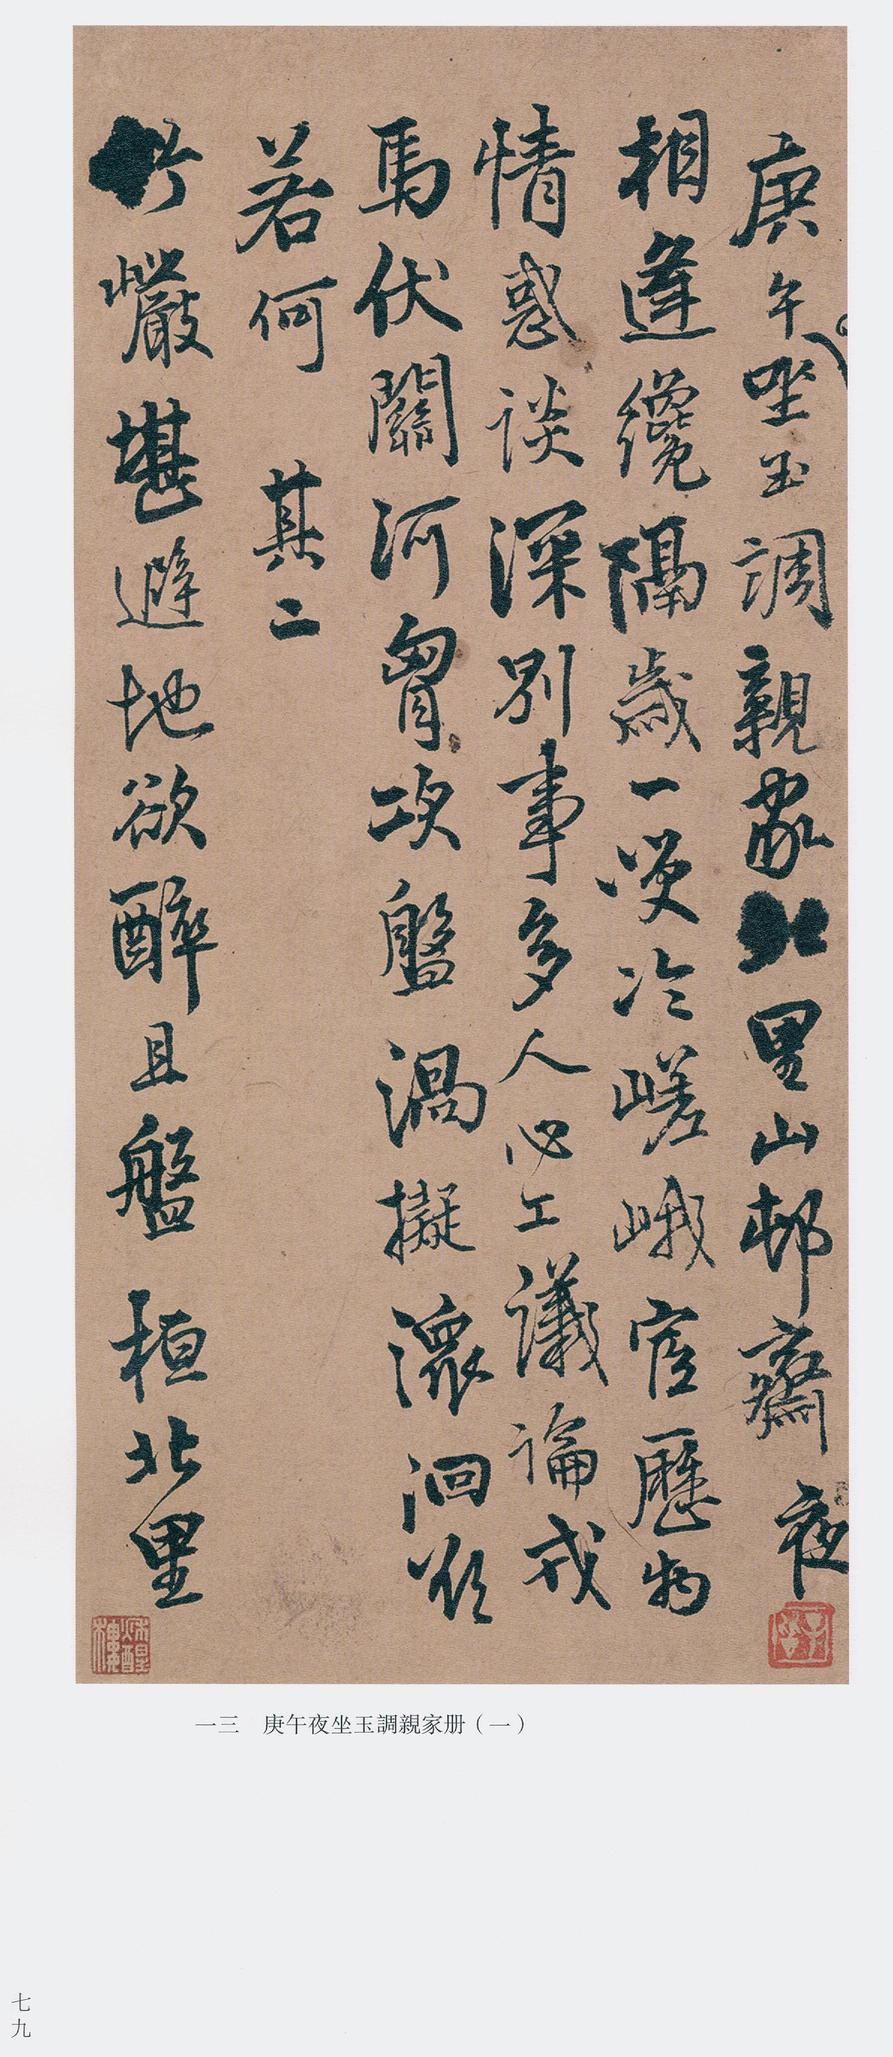 庚午坐玉調親家北里山邨齋夜
相逢纔隔歲一燈冷嵯峨宦歷物
情惑談深别事多人心工議論戎
馬伏關河胷次盤渦擬瀠洄欲
若何 其二
嚴堪避地欲醉且盤桓北里
一三 庚午夜坐玉調親家册（一）
七九